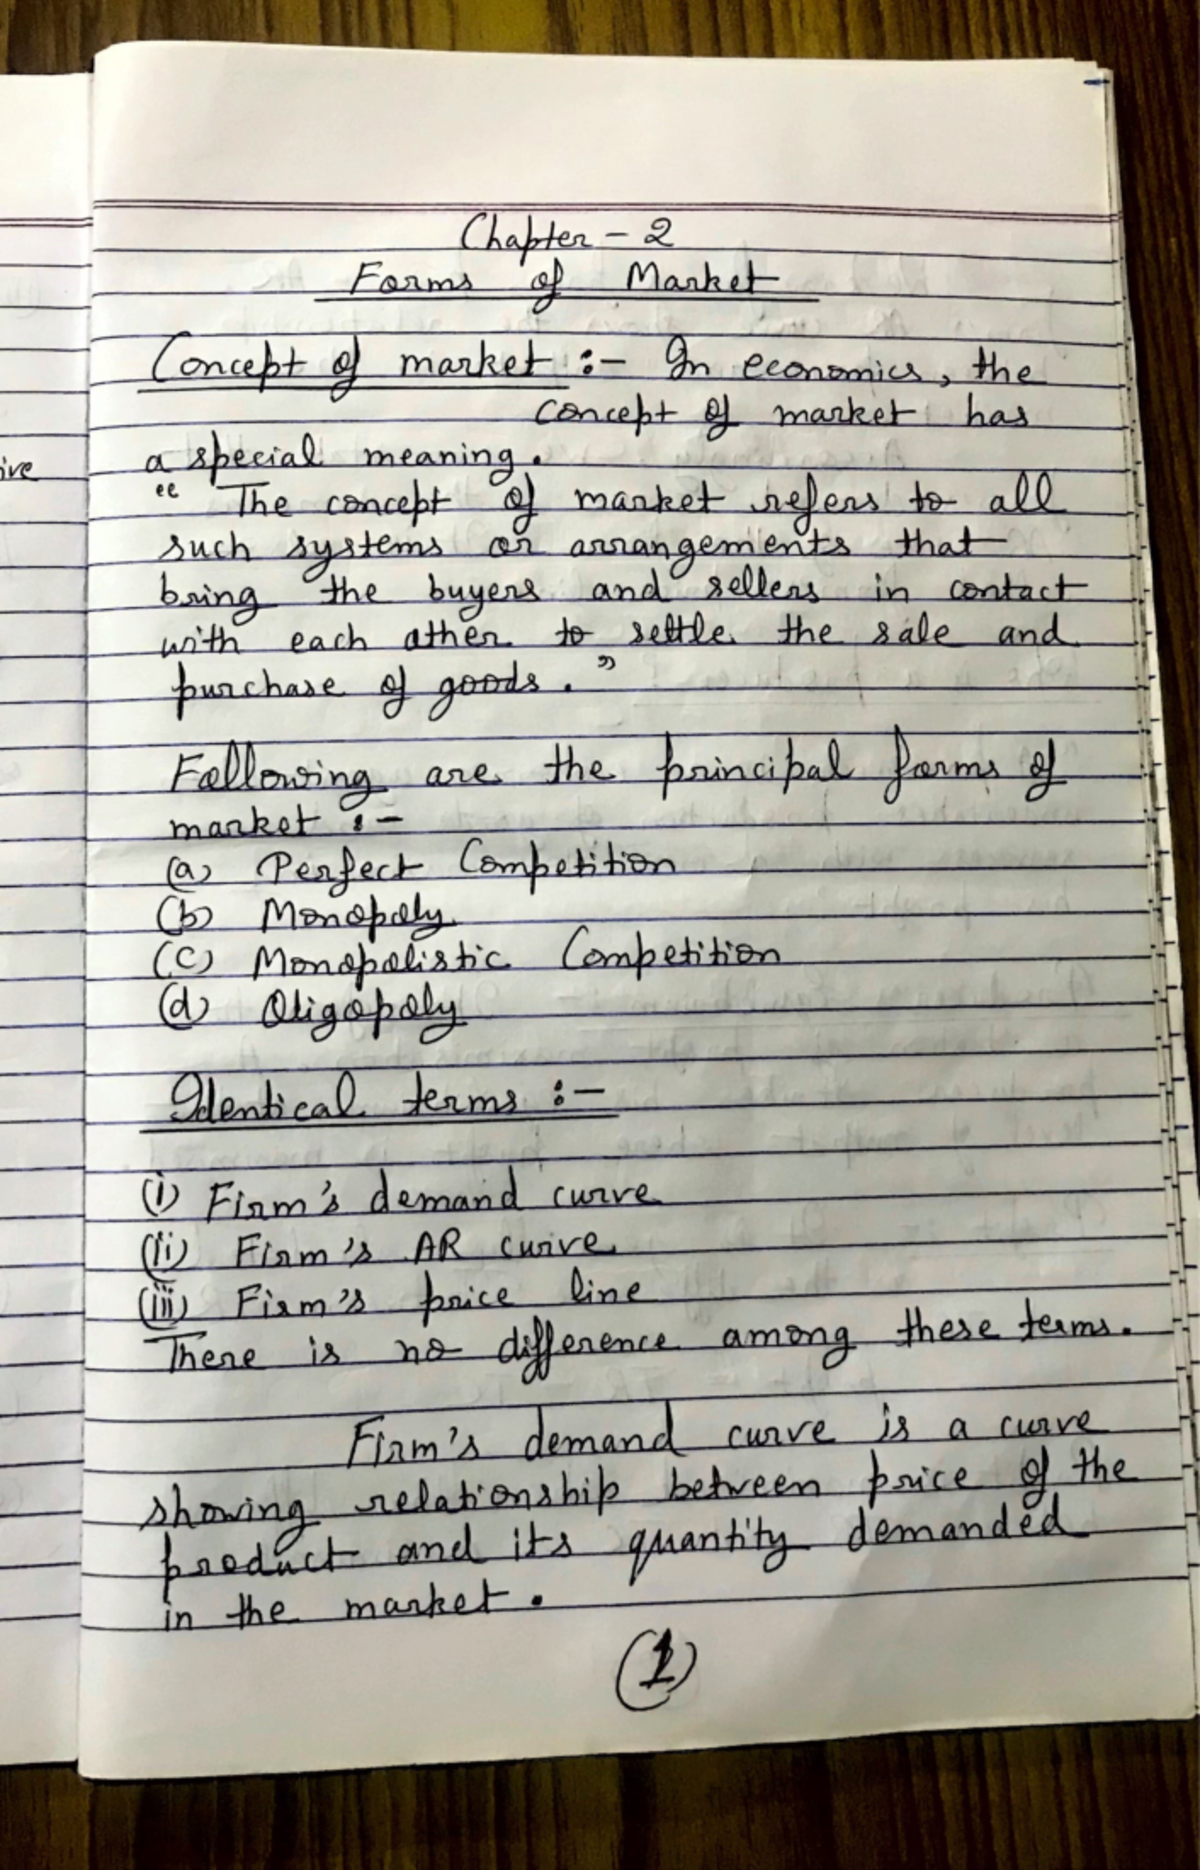 Chapter - 2
Forms of Market
Concept of market :- In economics, the
concept of market has
a special meaning.
ive
“ The concept of market refers to all
such systems or arrangements that
bring the buyers and sellers in contact
with each other to settle the sale and
purchase of goods. ”
Following are the principal forms of
market :-
(a) Perfect Competition
(b) Monopoly
(c) Monopolistic Competition
(d) Oligopoly
Identical terms :-
(i) Firm's demand curve
(ii) Firm's AR curve
(iii) Firm's price line
There is no difference among these terms.
Firm's demand curve is a curve
showing relationship between price of the
product and its quantity demanded
in the market.
(1)